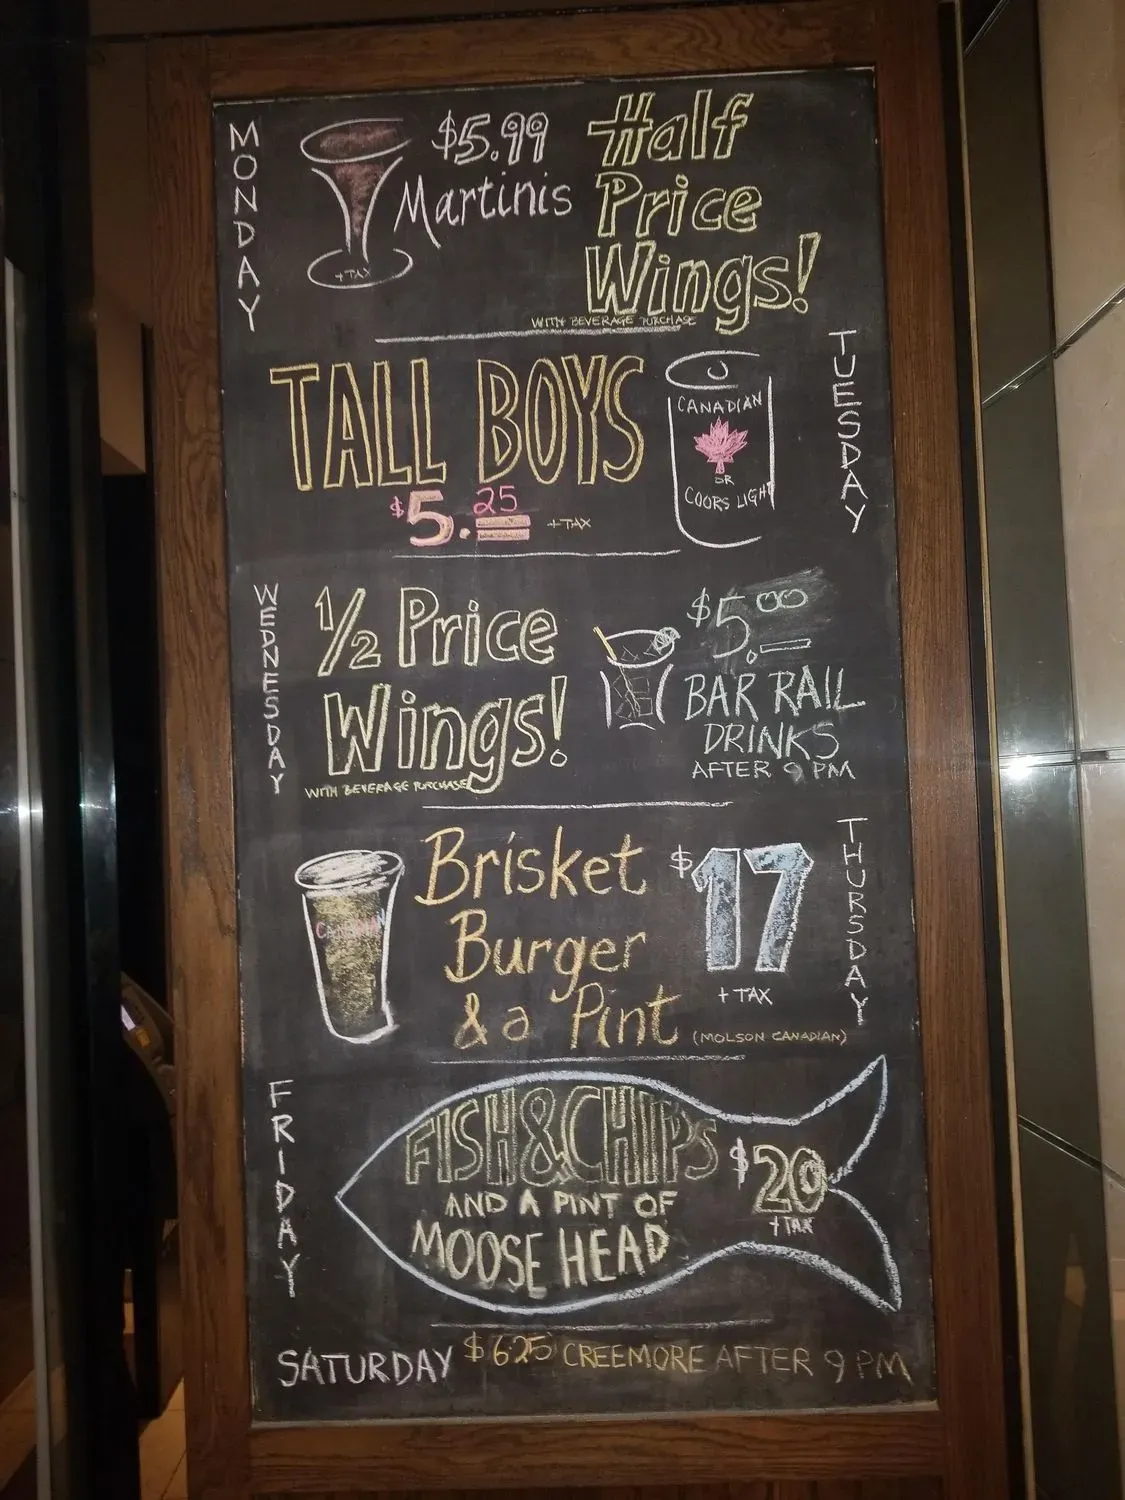 MONDAY
$5.99
Martinis
+TAX
Half
Price
Wings!
WITH BEVERAGE PURCHASE
TUESDAY
TALL BOYS
$5.25
+TAX
CANADIAN
OR
COORS LIGHT
WEDNESDAY
1/2 Price
Wings!
WITH BEVERAGE PURCHASE
$5.00
BAR RAIL
DRINKS
AFTER 9 PM
THURSDAY
CANADIAN
Brisket
Burger
& a Pint
(MOLSON CANADIAN)
$17
+ TAX
FRIDAY
FISH & CHIPS
AND A PINT OF
MOOSE HEAD
$20
+TAX
SATURDAY $6.25 CREEMORE AFTER 9 PM